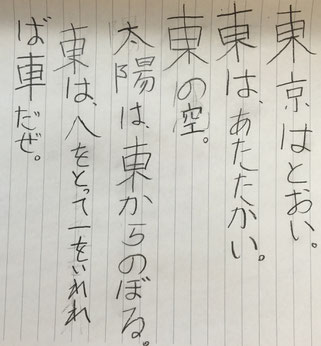 東京はとおい。
東は、あたたかい。
東の空。
太陽は、東からのぼる。
東は、八をとって一をいれれ
ば車だぜ。